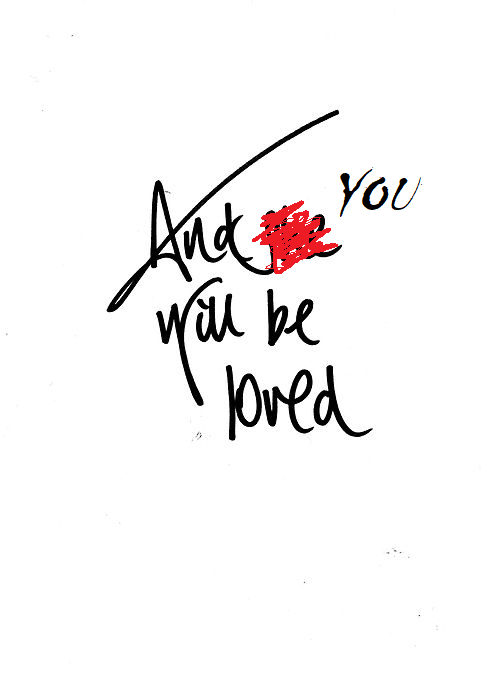 And YOU
will be
loved